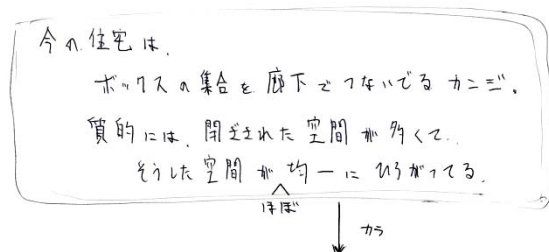 今の住宅は、
ボックスの集合を廊下でつないでるカンジ。
質的には、閉ざされた空間が多くて、
そうした空間がほぼ均一にひろがってる。
カラ